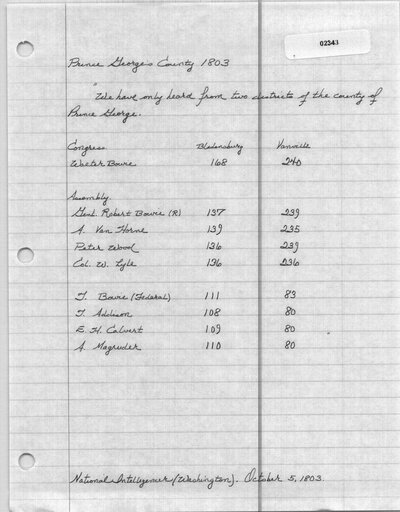 02343
Prince George's County 1803
"We have only heard from two districts of the county of
Prince George.
Congress Bladensburg Vansville
Walter Bowie 168 240
Assembly
Genl. Robert Bowie (R) 137 239
A. Van Horne 139 235
Peter Wood 136 239
Col. W. Lyle 136 236
T. Bowie (Federal) 111 83
T. Addison 108 80
E. H. Calvert 109 80
A. Magruder 110 80
National Intelligencer (Washington). October 5, 1803.